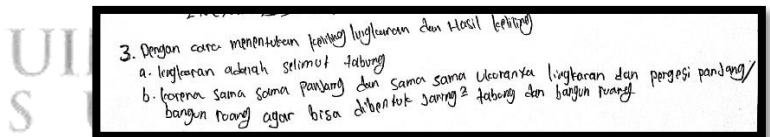 UI
S
3. Dengan cara menentukan keliling lingkaran dan Hasil keliling
a. lingkaran adalah selimut tabung
b. karena sama sama panjang dan sama sama ukuranya lingkaran dan pergesi pandang/
bangun ruang agar bisa dibentuk jaring² tabung dan bangun ruang